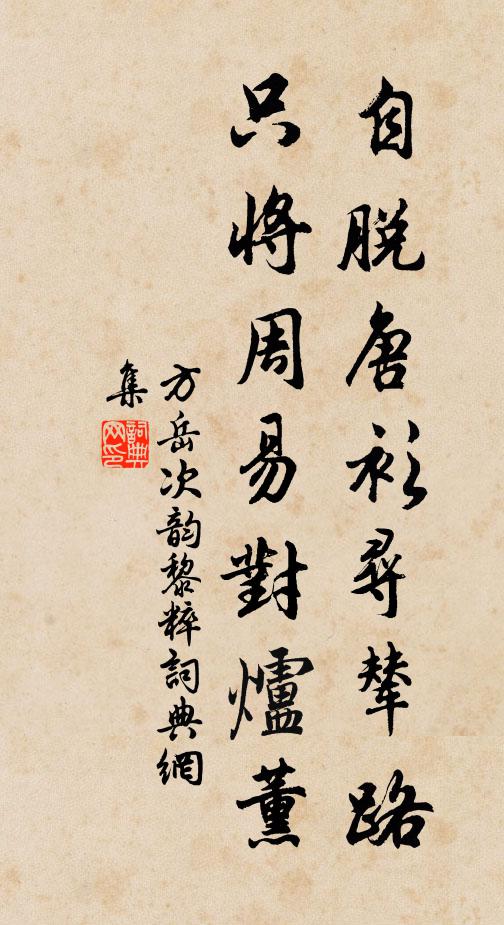 自脫唐衫尋輦路
只將周易對爐薰
方岳次韵黎粹詞典網
集
詞典
网印